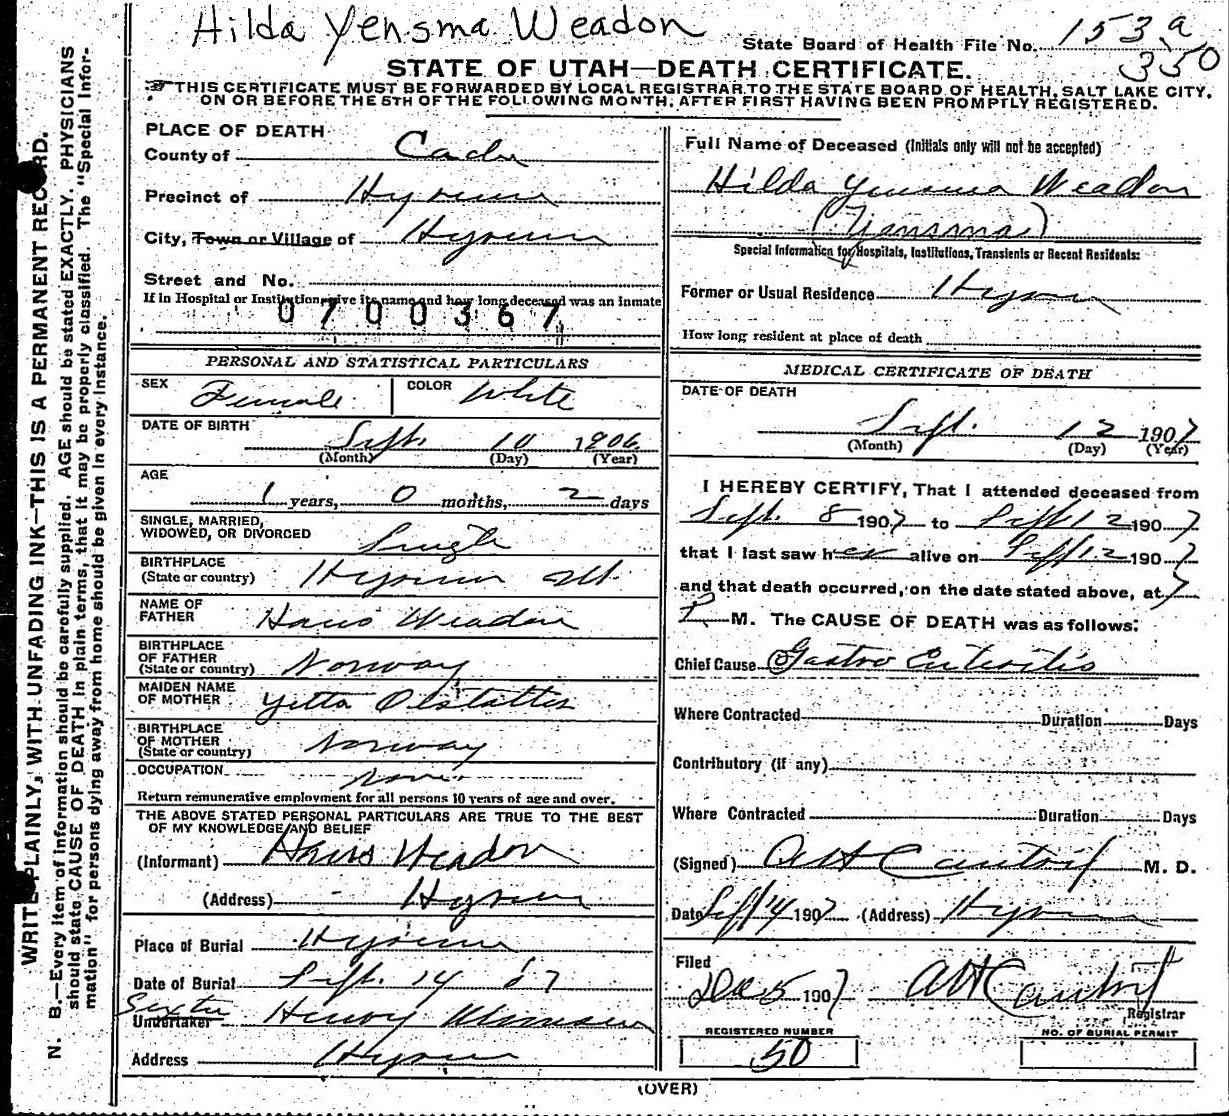 Hilda Yensma Weadon
State Board of Health File No. 153 a
350
STATE OF UTAH—DEATH CERTIFICATE.
THIS CERTIFICATE MUST BE FORWARDED BY LOCAL REGISTRAR TO THE STATE BOARD OF HEALTH, SALT LAKE CITY,
ON OR BEFORE THE 5TH OF THE FOLLOWING MONTH, AFTER FIRST HAVING BEEN PROMPTLY REGISTERED.
WRITE PLAINLY, WITH UNFADING INK—THIS IS A PERMANENT RECORD.
N. B.—Every item of information should be carefully supplied. AGE should be stated EXACTLY. PHYSICIANS
should state CAUSE OF DEATH in plain terms, that it may be properly classified. The "Special Infor-
mation" for persons dying away from home should be given in every instance.
PLACE OF DEATH
County of Cache
Precinct of Hyrum
City, Town or Village of Hyrum
Street and No.
If in Hospital or Institution, give its name and how long deceased was an inmate
0700367
PERSONAL AND STATISTICAL PARTICULARS
SEX Female COLOR White
DATE OF BIRTH Sept. 10 1906
(Month) (Day) (Year)
AGE
1 years, 0 months, 2 days
SINGLE, MARRIED,
WIDOWED, OR DIVORCED Single
BIRTHPLACE
(State or country) Hyrum Ut.
NAME OF
FATHER Hans Weadon
BIRTHPLACE
OF FATHER
(State or country) Norway
MAIDEN NAME
OF MOTHER Yetta
BIRTHPLACE
OF MOTHER
(State or country) Norway
OCCUPATION None
Return remunerative employment for all persons 10 years of age and over.
THE ABOVE STATED PERSONAL PARTICULARS ARE TRUE TO THE BEST
OF MY KNOWLEDGE AND BELIEF
(Informant) Hans Weadon
(Address) Hyrum
Place of Burial Hyrum
Date of Burial Sept. 14 '07
Sexton
Undertaker Henry
Address Hyrum
Full Name of Deceased (Initials only will not be accepted)
Hilda Yensma Weadon
(Yensma)
Special Information for Hospitals, Institutions, Transients or Recent Residents:
Former or Usual Residence Hyrum
How long resident at place of death
MEDICAL CERTIFICATE OF DEATH
DATE OF DEATH
Sept. 12 1907
(Month) (Day) (Year)
I HEREBY CERTIFY, That I attended deceased from
Sept. 8 1907 to Sept 12 1907
that I last saw her alive on Sept 12 1907
and that death occurred, on the date stated above, at 7
P M. The CAUSE OF DEATH was as follows:
Chief Cause Gastro Enteritis
Where Contracted Duration Days
Contributory (if any)
Where Contracted Duration Days
(Signed) M. D.
Date Sept 14 1907 (Address) Hyrum
Filed
Dec 5 1907
Registrar
REGISTERED NUMBER
50
NO. OF BURIAL PERMIT
(OVER)